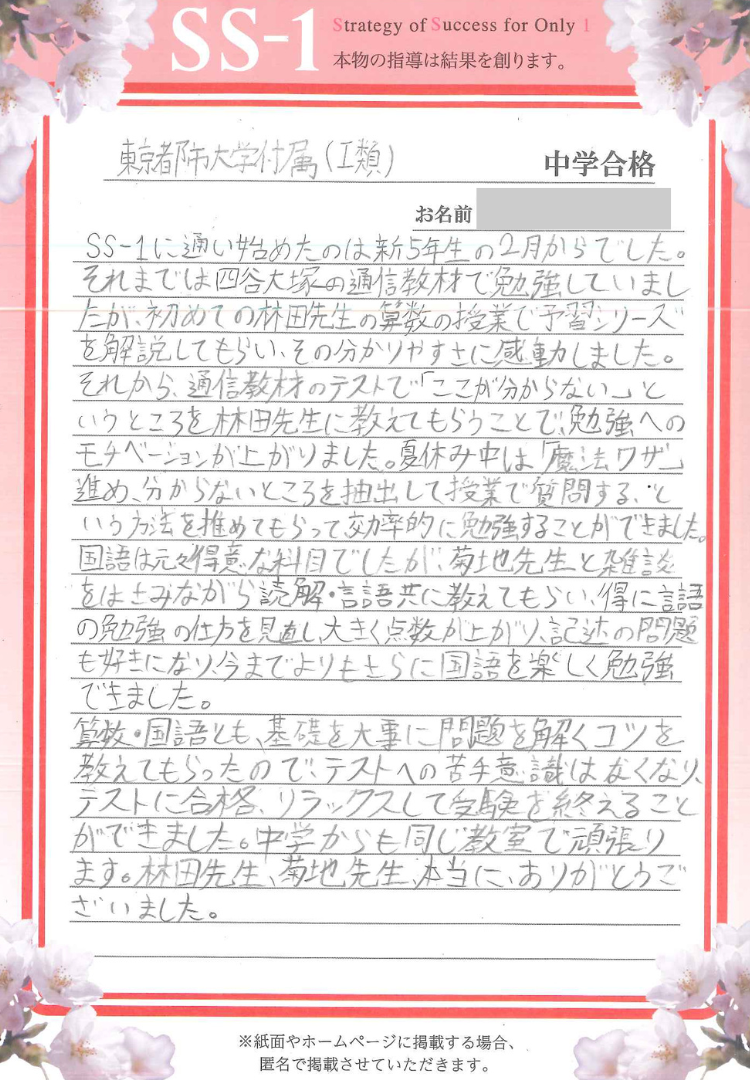 SS-1
Strategy of Success for Only 1
本物の指導は結果を創ります。
東京都市大学付属(I類)
中学合格
お名前
SS-1に通い始めたのは新5年生の2月からでした。
それまでは四谷大塚の通信教材で勉強していまし
たが、初めての林田先生の算数の授業で予習シリーズ
を解説してもらい、その分かりやすさに感動しました。
それから、通信教材のテストで「ここが分からない」と
いうところを林田先生に教えてもらうことで、勉強への
モチベーションが上がりました。夏休み中は「魔法ワザ」
進め、分からないところを抽出して授業で質問する、と
いう方法を推めてもらって効率的に勉強することができました。
国語は元々得意な科目でしたが、菊地先生と雑談
をはさみながら読解・言語共に教えてもらい、得に言語
の勉強の仕方を見直し、大きく点数が上がり、記述の問題
も好きになり、今までよりもさらに国語を楽しく勉強
できました。
算数・国語とも、基礎を大事に問題を解くコツを
教えてもらったので、テストへの苦手意識はなくなり、
テストに合格、リラックスして受験を終えること
ができました。中学からも同じ教室で頑張り
ます。林田先生、菊地先生、本当に、ありがとうご
ざいました。
※紙面やホームページに掲載する場合、
匿名で掲載させていただきます。